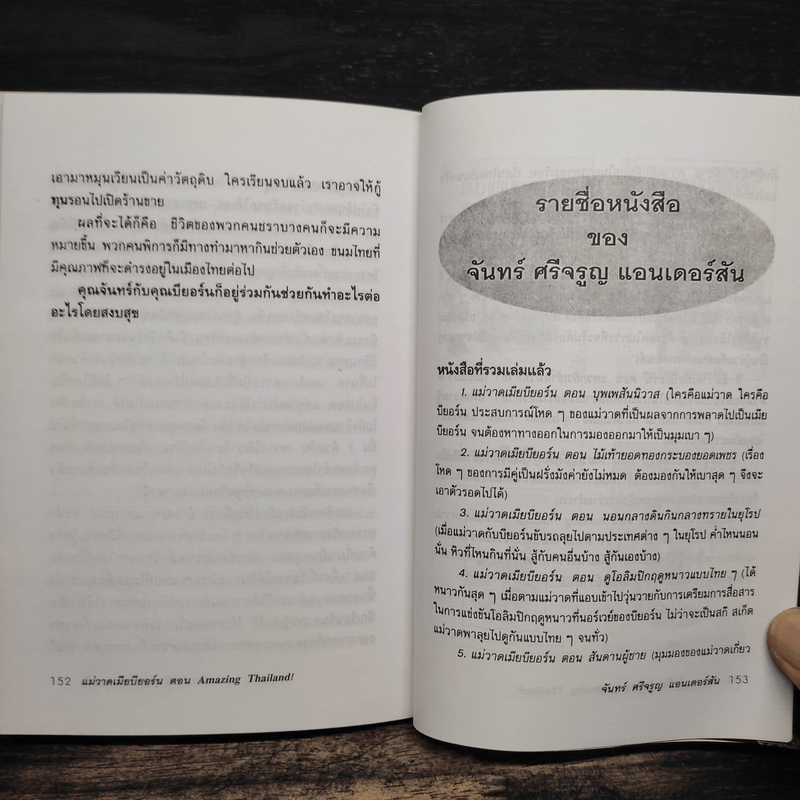 เอามาหมุนเรียนเป็นค่าวัตถุดิบ ใครเรียนจบแล้ว เราอาจให้กู้
ทุนรอนไปเปิดร้านขาย
ผลที่จะได้ก็คือ ชีวิตของพวกคนชราบางคนก็จะมีความ
หมายขึ้น พวกคนพิการก็มีทางทำมาหากินช่วยตัวเอง ขนมไทยที่
มีคุณภาพก็จะดำรงอยู่ในเมืองไทยต่อไป
คุณจันทร์กับคุณบียอร์นก็อยู่ร่วมกันช่วยกันทำอะไรต่อ
อะไรโดยสงบสุข
152 แม่วาดเมียบียอร์น ตอน Amazing Thailand!
รายชื่อหนังสือ
ของ
จันทร์ ศรีจรูญ แอนเดอร์สัน
หนังสือที่รวมเล่มแล้ว
1. แม่วาดเมียบียอร์น ตอน บุพเพสันนิวาส (ใครคือแม่วาด ใครคือ
บียอร์น ประสบการณ์โหด ๆ ของแม่วาดที่เป็นผลจากการพลาดไปเป็นเมีย
บียอร์น จนต้องหาทางออกในการมองออกมาให้เป็นมุมเบา ๆ)
2. แม่วาดเมียบียอร์น ตอน ไม้เท้ายอดทองกระบองยอดเพชร (เรื่อง
โหด ๆ ของการมีคู่เป็นฝรั่งมังค่ายังไม่หมด ต้องมองกันให้เบาสุด ๆ จึงจะ
เอาตัวรอดไปได้)
3. แม่วาดเมียบียอร์น ตอน นอนกลางดินกินกลางทรายในยุโรป
(เมื่อแม่วาดกับบียอร์นขับรถลุยไปตามประเทศต่าง ๆ ในยุโรป ค่ำไหนนอน
นั่น หิวที่ไหนกินที่นั่น สู้กับคนอื่นบ้าง สู้กันเองบ้าง)
4. แม่วาดเมียบียอร์น ตอน ดูโอลิมปิกฤดูหนาวแบบไทย ๆ (ได้
หนาวกันสุด ๆ เมื่อตามแม่วาดที่แอบเข้าไปวุ่นวายกับการเตรียมการสื่อสาร
ในการแข่งขันโอลิมปิกฤดูหนาวที่นอร์เวย์ของบียอร์น ไม่ว่าจะเป็นสกี สเก็ต
แม่วาดพาลุยไปดูกันแบบไทย ๆ จนทั่ว)
5. แม่วาดเมียบียอร์น ตอน สันดานผู้ชาย (มุมมองของแม่วาดเกี่ยว
จันทร์ ศรีจรูญ แอนเดอร์สัน 153